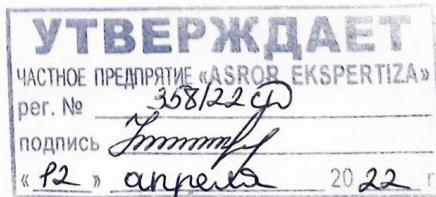 УТВЕРЖДАЕТ
ЧАСТНОЕ ПРЕДПРЯТИЕ «ASROR EKSPERTIZA»
рег. № 358/22 ф
подпись
« 12 » апреля 20 22 г